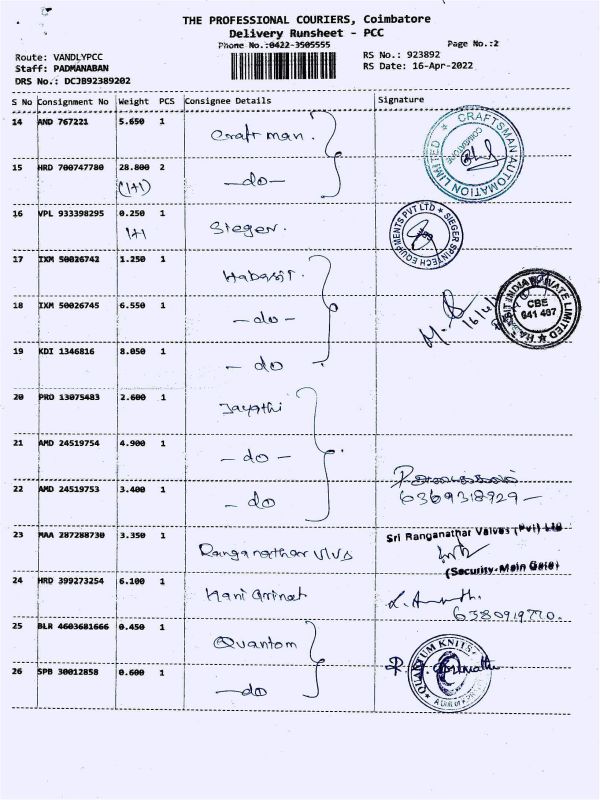 THE PROFESSIONAL COURIERS, Coimbatore
Delivery Runsheet - PCC
Phone No.:0422-3505555
Page No.:2
Route: VANDLYPCC
RS No.: 923892
Staff: PADMANABAN
RS Date: 16-Apr-2022
DRS No.: DCJB92389202
S No Consignment No Weight PCS Consignee Details Signature
14 AMD 767221 5.650 1 Craftman.
CRAFTSMAN AUTOMATION LIMITED ★ COIMBATORE
15 HRD 700747780 28.800 2 -do-
(1+1)
16 VPL 933398295 0.250 1 Sieger.
1+1
SIEGER SPINTECH EQUIPMENTS PVT LTD ★
17 IXM 50026742 1.250 1 Habasit.
18 IXM 50026745 6.550 1 -do-
16/4/
PRIVATE LIMITED ★
CBE
641 407
19 KDI 1346816 8.050 1 -do
20 PRO 13075483 2.600 1 Jayathi
21 AMD 24519754 4.900 1 -do-
22 AMD 24519753 3.400 1 -do
6369318929-
23 MAA 287288730 3.350 1 Ranganathar
Sri Ranganathar Valves (Pvt) Ltd
(Security-Main Gate)
24 HRD 399273254 6.100 1 Hani
6380919770.
25 BLR 4603681666 0.450 1 Quantom
QUANTUM KNITS
26 SPB 30012858 0.600 1 -do